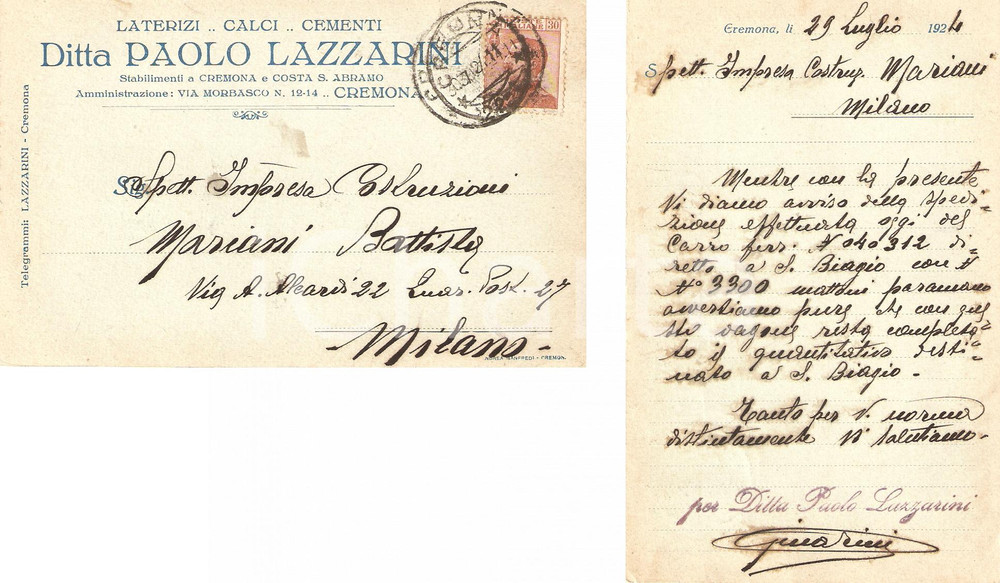 LATERIZI .. CALCI .. CEMENTI
Ditta PAOLO LAZZARINI
Stabilimenti a CREMONA e COSTA S. ABRAMO
Amministrazione: VIA MORBASCO N. 12-14 .. CREMONA
30
CREMONA
Telegrammi: LAZZARINI - Cremona
Spett. Impresa Costruzioni
Mariani Battista
Via A. Aleardi 22 Quar. Post. 27
Milano -
Cremona, li 29 Luglio 1924
Spett. Impresa Costruz. Mariani
Milano
Mentre con la presente
Vi diamo avviso della spedi=
zione effettuata oggi del
Carro ferr. N 040312 di=
retto a S. Biagio con N
N° 3300 mattoni paramano
avvertiamo pure che con que=
sto vagone resta completa=
to il quantitativo desti=
nato a S. Biagio -
Tanto per V. norma
distintamente Vi salutiamo -
per Ditta Paolo Lazzarini